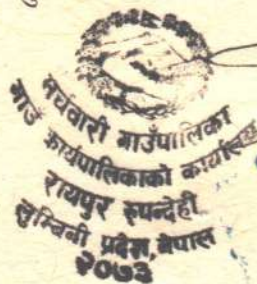 मर्चवारी गाउँपालिका
गाउँ कार्यपालिकाको कार्यालय
रायपुर रुपन्देही
लुम्बिनी प्रदेश, नेपाल
२०७३